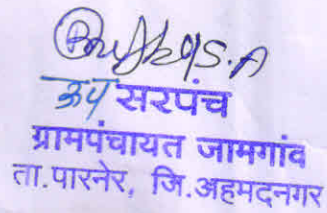 उप सरपंच
ग्रामपंचायत जामगांव
ता.पारनेर, जि.अहमदनगर